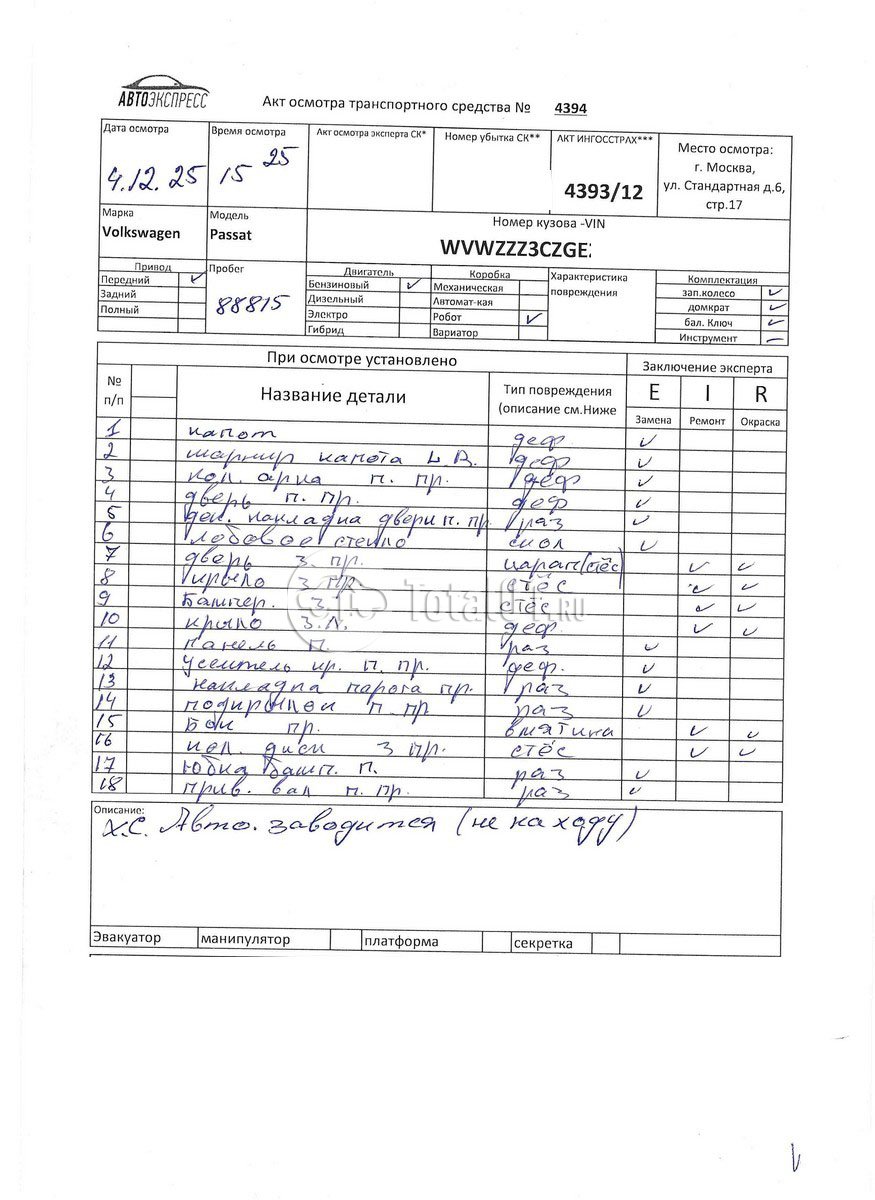 АВТОЭКСПРЕСС
Акт осмотра транспортного средства № 4394
Дата осмотра Время осмотра Акт осмотра эксперта СК* Номер убытка СК** АКТ ИНГОССТРАХ*** Место осмотра:
г. Москва,
4.12.25 15 25 4393/12 ул. Стандартная д.6,
стр.17
Марка Модель Номер кузова -VIN
Volkswagen Passat WVWZZZ3CZGE
Привод Пробег Двигатель Коробка Характеристика Комплектация
Передний ✓ 88815 Бензиновый ✓ Механическая повреждения зап.колесо ✓
Задний Дизельный Автомат-кая домкрат ✓
Полный Электро Робот ✓ бал. Ключ ✓
Гибрид Вариатор Инструмент –
При осмотре установлено Заключение эксперта
№ п/п Название детали Тип повреждения (описание см.Ниже E I R
Замена Ремонт Окраска
1 капот деф ✓
2 шарнир капота L.R. деф ✓
3 кол. арка п. пр. деф ✓
4 дверь п. пр. деф ✓
5 дек. накладка двери п. пр. раз ✓
6 лобовое стекло скол ✓
7 дверь з. пр. царап (стёс) ✓ ✓
8 крыло з пр стёс ✓ ✓
9 Бампер. з. стёс ✓ ✓
10 крыло з.л. деф ✓ ✓
11 панель п. раз ✓
12 усилитель кр. п. пр. деф. ✓
13 накладка парога пр. раз ✓
14 подкрылок п. пр раз ✓
15 Бок пр. вмятина ✓ ✓
16 кол. диск з пр. стёс ✓ ✓
17 Юбка бамп. п. раз ✓
18 прив. вал п. пр. раз ✓
TotalOut.RU
Описание:
Х.С. Авто. заводится (не на ходу)
Эвакуатор манипулятор платформа секретка